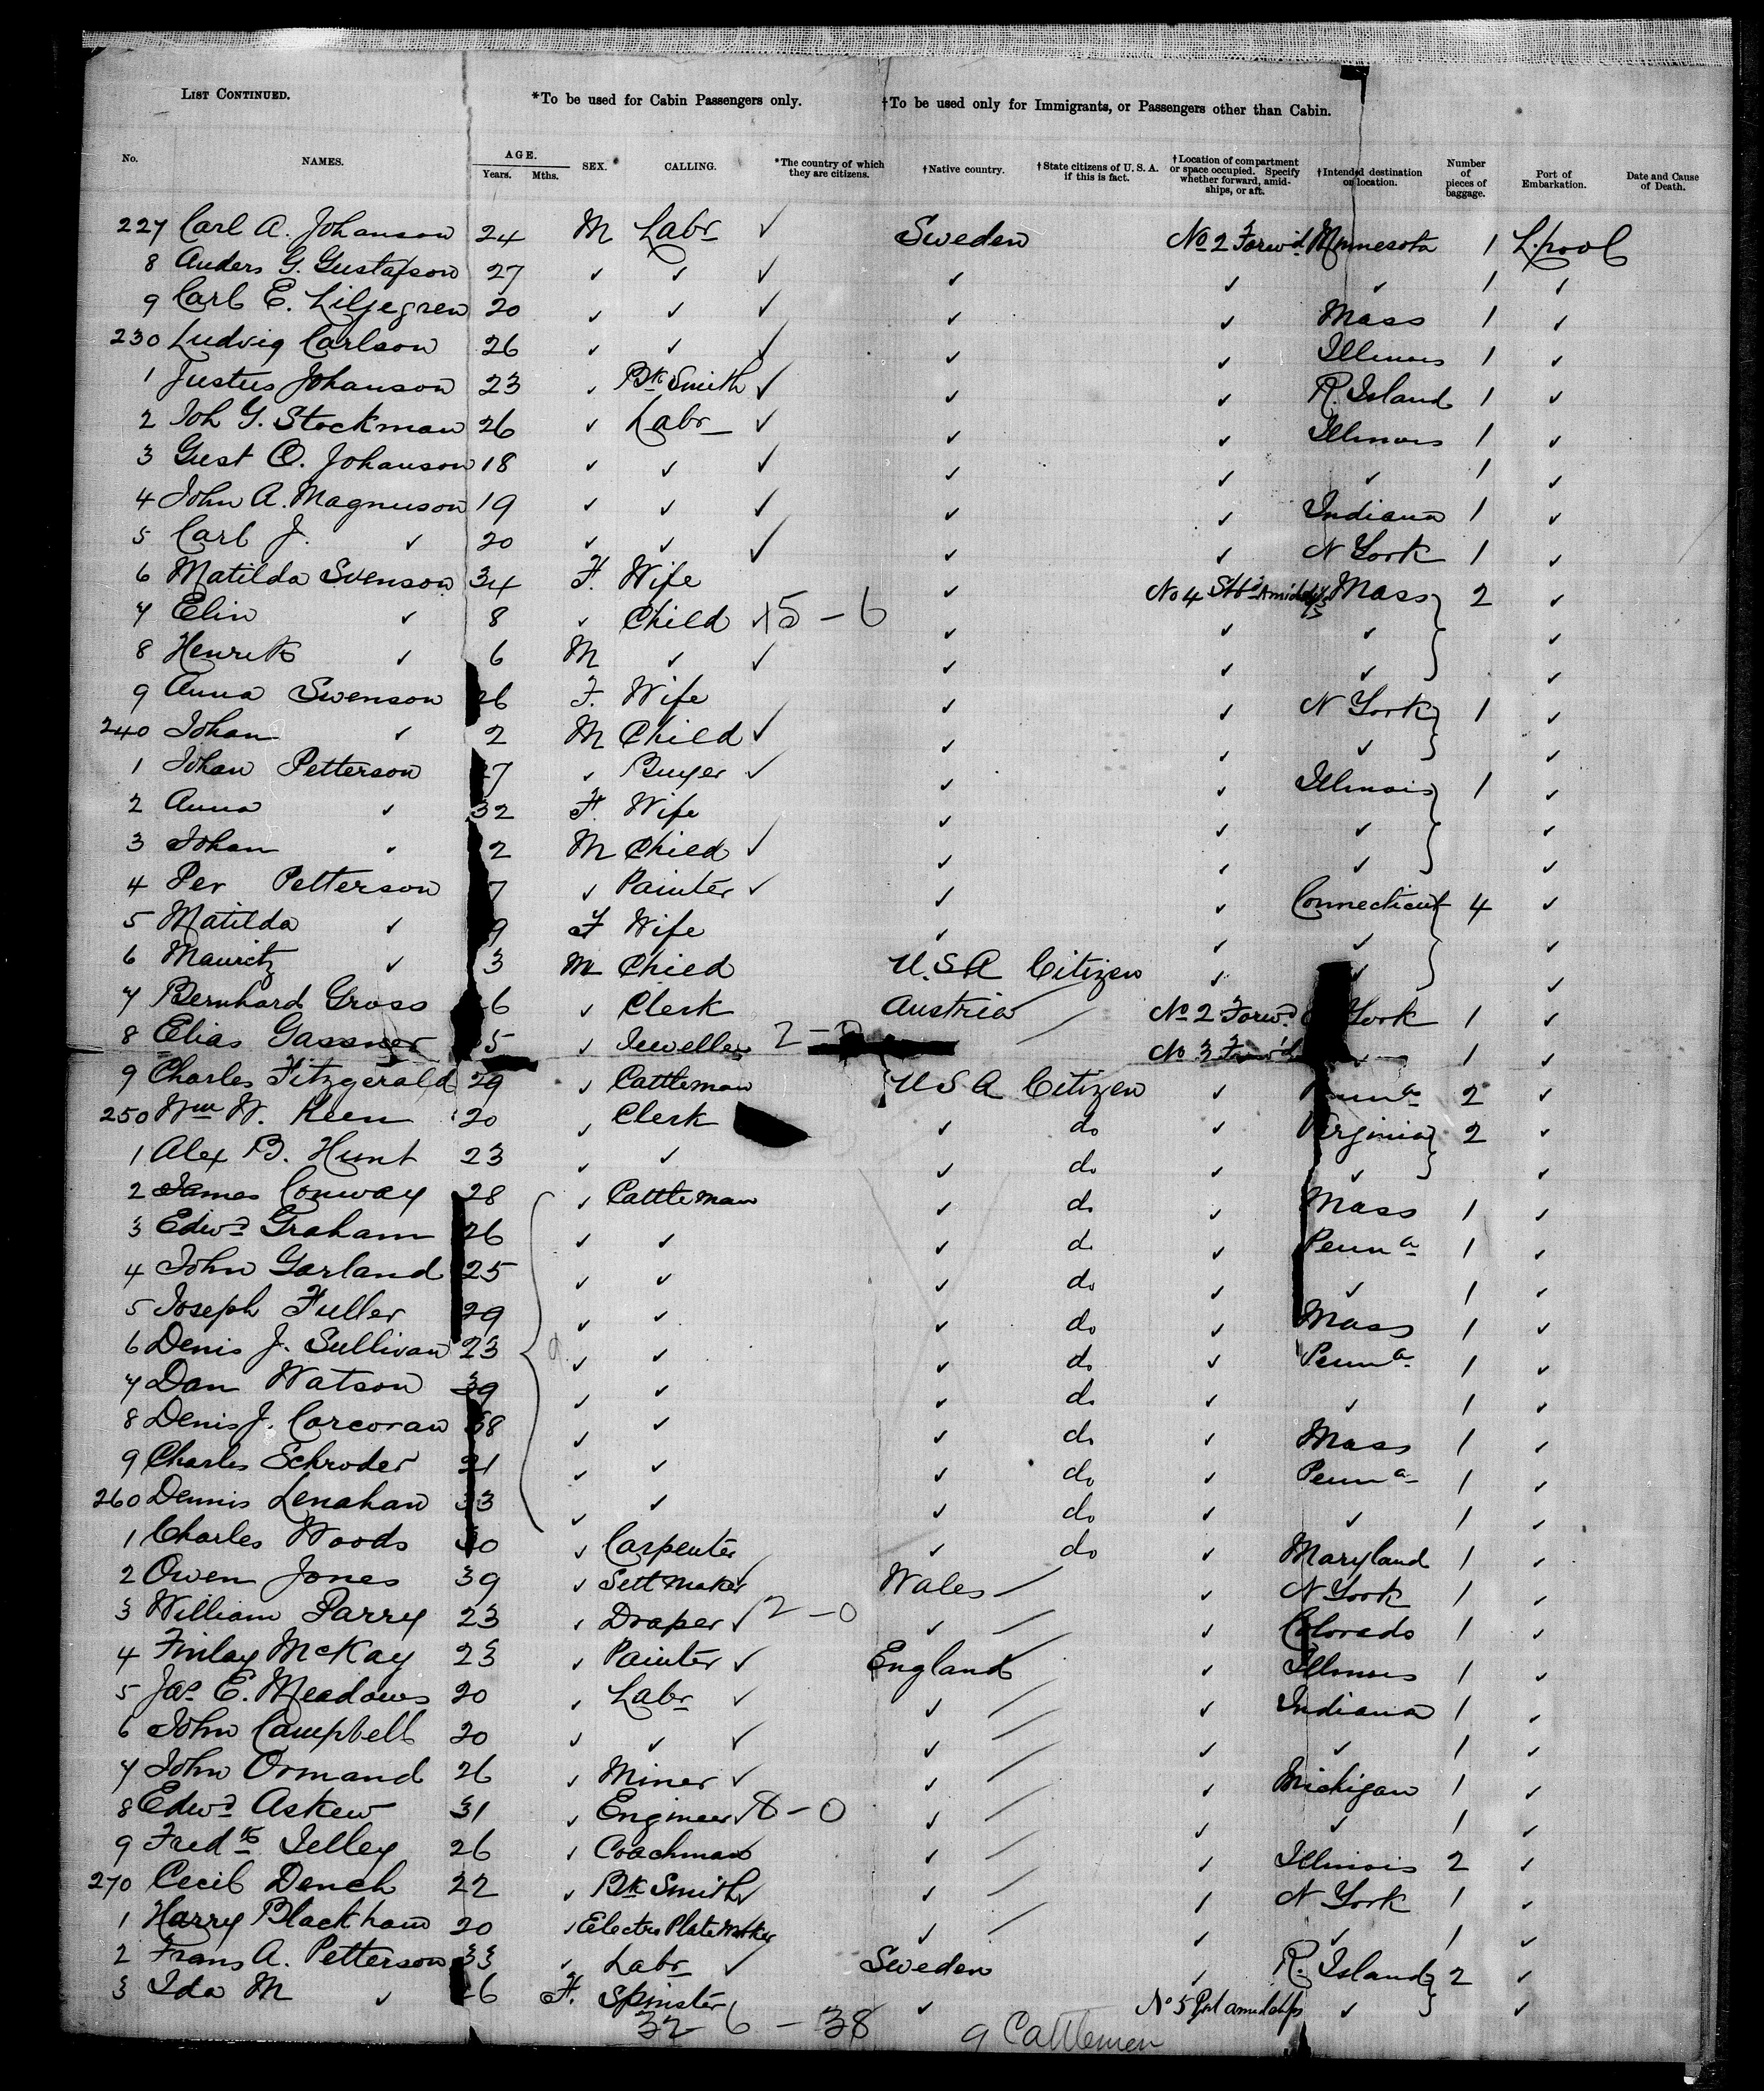 LIST CONTINUED. *To be used for Cabin Passengers only. †To be used only for Immigrants, or Passengers other than Cabin.
No. NAMES. AGE. Years. Mths. SEX. CALLING. *The country of which they are citizens. †Native country. †State citizens of U. S. A. if this is fact. †Location of compartment or space occupied. Specify whether forward, amidships, or aft. †Intended destination or location. Number of pieces of baggage. Port of Embarkation. Date and Cause of Death.
227 Carl A. Johanson 24 M Labr ✓ Sweden No 2 Forwd Minnesota 1 L.pool
8 Anders G. Gustafson 27 ✓ ✓ ✓ ✓ ✓ ✓ 1 ✓
9 Carl E. Liljegren 20 ✓ ✓ ✓ ✓ ✓ Mass 1 ✓
230 Ludvig Carlson 26 ✓ ✓ ✓ ✓ ✓ Illinois 1 ✓
1 Justus Johanson 23 ✓ Bk Smith ✓ ✓ ✓ R. Island 1 ✓
2 Joh G. Stockman 26 ✓ Labr ✓ ✓ ✓ Illinois 1 ✓
3 Gust O. Johanson 18 ✓ ✓ ✓ ✓ ✓ ✓ 1 ✓
4 John A. Magnuson 19 ✓ ✓ ✓ ✓ ✓ Indiana 1 ✓
5 Carl J. ✓ 20 ✓ ✓ ✓ ✓ ✓ N York 1 ✓
6 Matilda Svenson 34 F. Wife ✓ No 4 Stbd Amidships Mass 2 ✓
7 Elin ✓ 8 ✓ Child ✓ 15 - 6 ✓ ✓ ✓ ✓
8 Henrik ✓ 6 M ✓ ✓ ✓ ✓ ✓ ✓
9 Anna Swenson 26 F. Wife ✓ ✓ N York 1 ✓
240 Johan ✓ 2 M Child ✓ ✓ ✓ ✓ ✓
1 Johan Petterson 7 ✓ Buyer ✓ ✓ ✓ Illinois 1 ✓
2 Anna ✓ 32 F. Wife ✓ ✓ ✓ ✓
3 Johan ✓ 2 M Child ✓ ✓ ✓ ✓ ✓
4 Per Petterson 7 ✓ Painter ✓ ✓ ✓ Connecticut 4 ✓
5 Matilda ✓ 9 F Wife ✓ ✓ ✓ ✓
6 Mauritz ✓ 3 M Child U.S.A Citizen ✓ ✓ ✓
7 Bernhard Gross 6 ✓ Clerk Austria No 2 Forwd York 1 ✓
8 Elias Gassner 5 ✓ Jeweller 2 - No 3 Forwd 1 ✓
9 Charles Fitzgerald 29 ✓ Cattleman U S A Citizen ✓ Penna 2 ✓
250 Wm W. Keen 20 ✓ Clerk ✓ do ✓ Virginia 2 ✓
1 Alex B. Hunt 23 ✓ ✓ ✓ do ✓ ✓ ✓
2 James Conway 28 ✓ Cattleman ✓ do ✓ Mass 1 ✓
3 Edwd Graham 26 ✓ ✓ ✓ do ✓ Penna 1 ✓
4 John Garland 25 ✓ ✓ ✓ do ✓ ✓ 1 ✓
5 Joseph Fuller 29 ✓ ✓ ✓ do ✓ Mass 1 ✓
6 Denis J. Sullivan 23 9 ✓ ✓ ✓ do ✓ Penna 1 ✓
7 Dan Watson 39 ✓ ✓ ✓ do ✓ ✓ 1 ✓
8 Denis J. Corcoran 38 ✓ ✓ ✓ do ✓ Mass 1 ✓
9 Charles Schroder 21 ✓ ✓ ✓ do ✓ Penna 1 ✓
260 Dennis Lenahan 33 ✓ ✓ do ✓ ✓ 1 ✓
1 Charles Woods 30 ✓ Carpenter ✓ do ✓ Maryland 1 ✓
2 Owen Jones 39 ✓ Sett Maker ✓ Wales ✓ N York 1 ✓
3 William Parry 23 ✓ Draper ✓ 2 - 0 ✓ ✓ Colorado 1 ✓
4 Finlay McKay 23 ✓ Painter ✓ England ✓ Illinois 1 ✓
5 Jas E. Meadows 20 ✓ Labr ✓ ✓ ✓ Indiana 1 ✓
6 John Campbell 20 ✓ ✓ ✓ ✓ ✓ ✓ 1 ✓
7 John Ormand 26 ✓ Miner ✓ ✓ ✓ Michigan 1 ✓
8 Edwd Askew 31 ✓ Engineer ✓ 8 - 0 ✓ ✓ ✓ 1 ✓
9 Fredk Jelley 26 ✓ Coachman ✓ ✓ Illinois 2 ✓
270 Cecil Dench 22 ✓ Bk Smith ✓ ✓ ✓ N York 1 ✓
1 Harry Blackham 20 ✓ Electro Plate Worker ✓ ✓ ✓ 1 ✓
2 Frans A. Petterson 33 ✓ Labr ✓ Sweden ✓ R. Island 2 ✓
3 Ida M ✓ 26 F. Spinster ✓ No 5 Port amidships ✓ ✓
32 6 - 38 9 Cattlemen